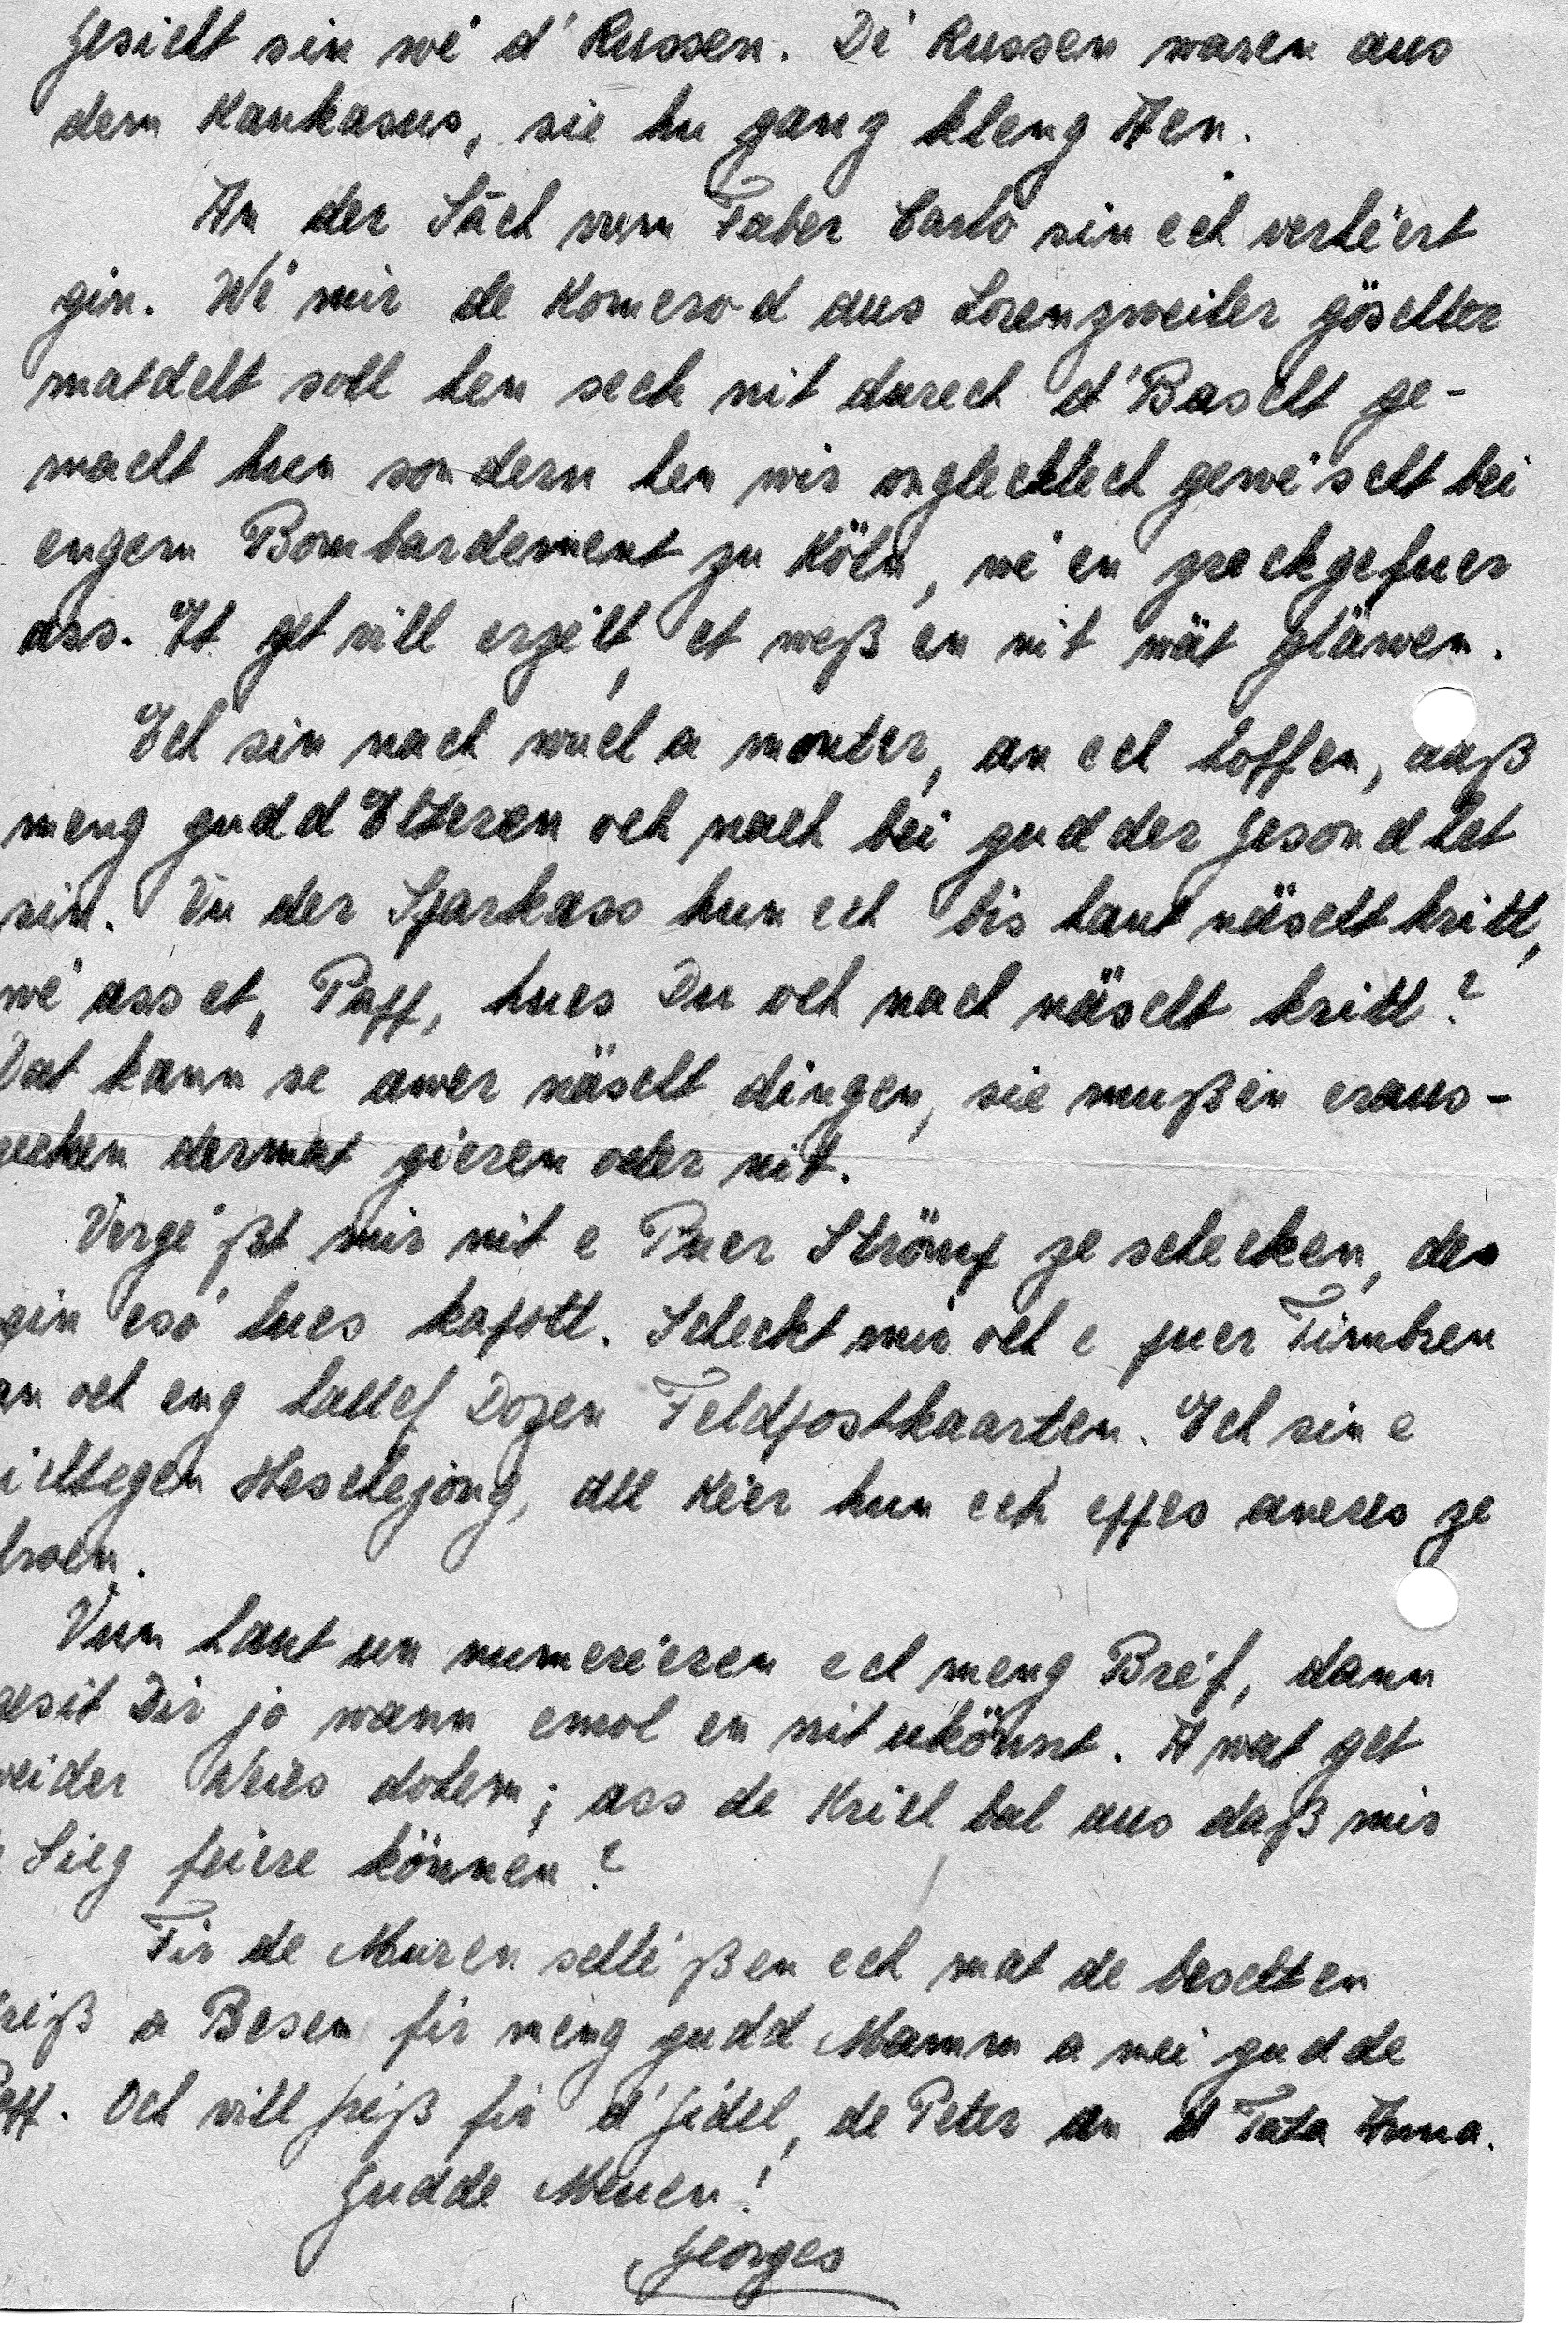 Gesiicht sin wé d'Russen. Dé Russen waren aus
dem Kaukasus, sie hu ganz kleng Aen.
An der Sâch vum Faber Carlo sin ech verféert
gin. Wé mir de Komerod aus Lorenzweiler göschter
matdelt soll hen sech nit durech d'Bascht ge-
macht hun sondern hen wir onglecklech gewéscht bei
engem Bombardement zu Köln, wé en zreckgefuer
ass. Et get vill erzélt, et weß en nit wät gläwen.
Ech sin nach wuel a monter, an ech hoffen, daß
meng gudd Elteren och nach bei gudder Gesondhet
sin. Vu der Sparkass hun ech bis haut näscht kritt,
wé ass et, Papp, hues Du och nach näscht kritt?
Dat kann se awer näscht dingen, sie mußen eraus-
recken dermat gieren oder nit.
Vergéßt mir nit e Puer Strömp ze schecken, der
gin esó lues kapott. Scheckt mir och e puer Timbren
an och eng hallef Dozen Feldpostkaarten. Ech sin e
richtegen Heschejong, all Kéer hun ech eppes aneres ze
froen.
Vum haut un numeréieren ech meng Bréf, dann
gesit Dir jo wann emol en nit ukönnt. A wat get
weider Neies dohem; ass de Krich bal aus daß mir
Sieg feiere können?
Fir de Muren schléßen ech mat de beschten
Greiß a Besen fir meng gudd Mamm a mei gudde
Papp. Och vill Greiß fir d'Gédel, de Peter an d'Tata Anna.
Gudde Muen!
Georges